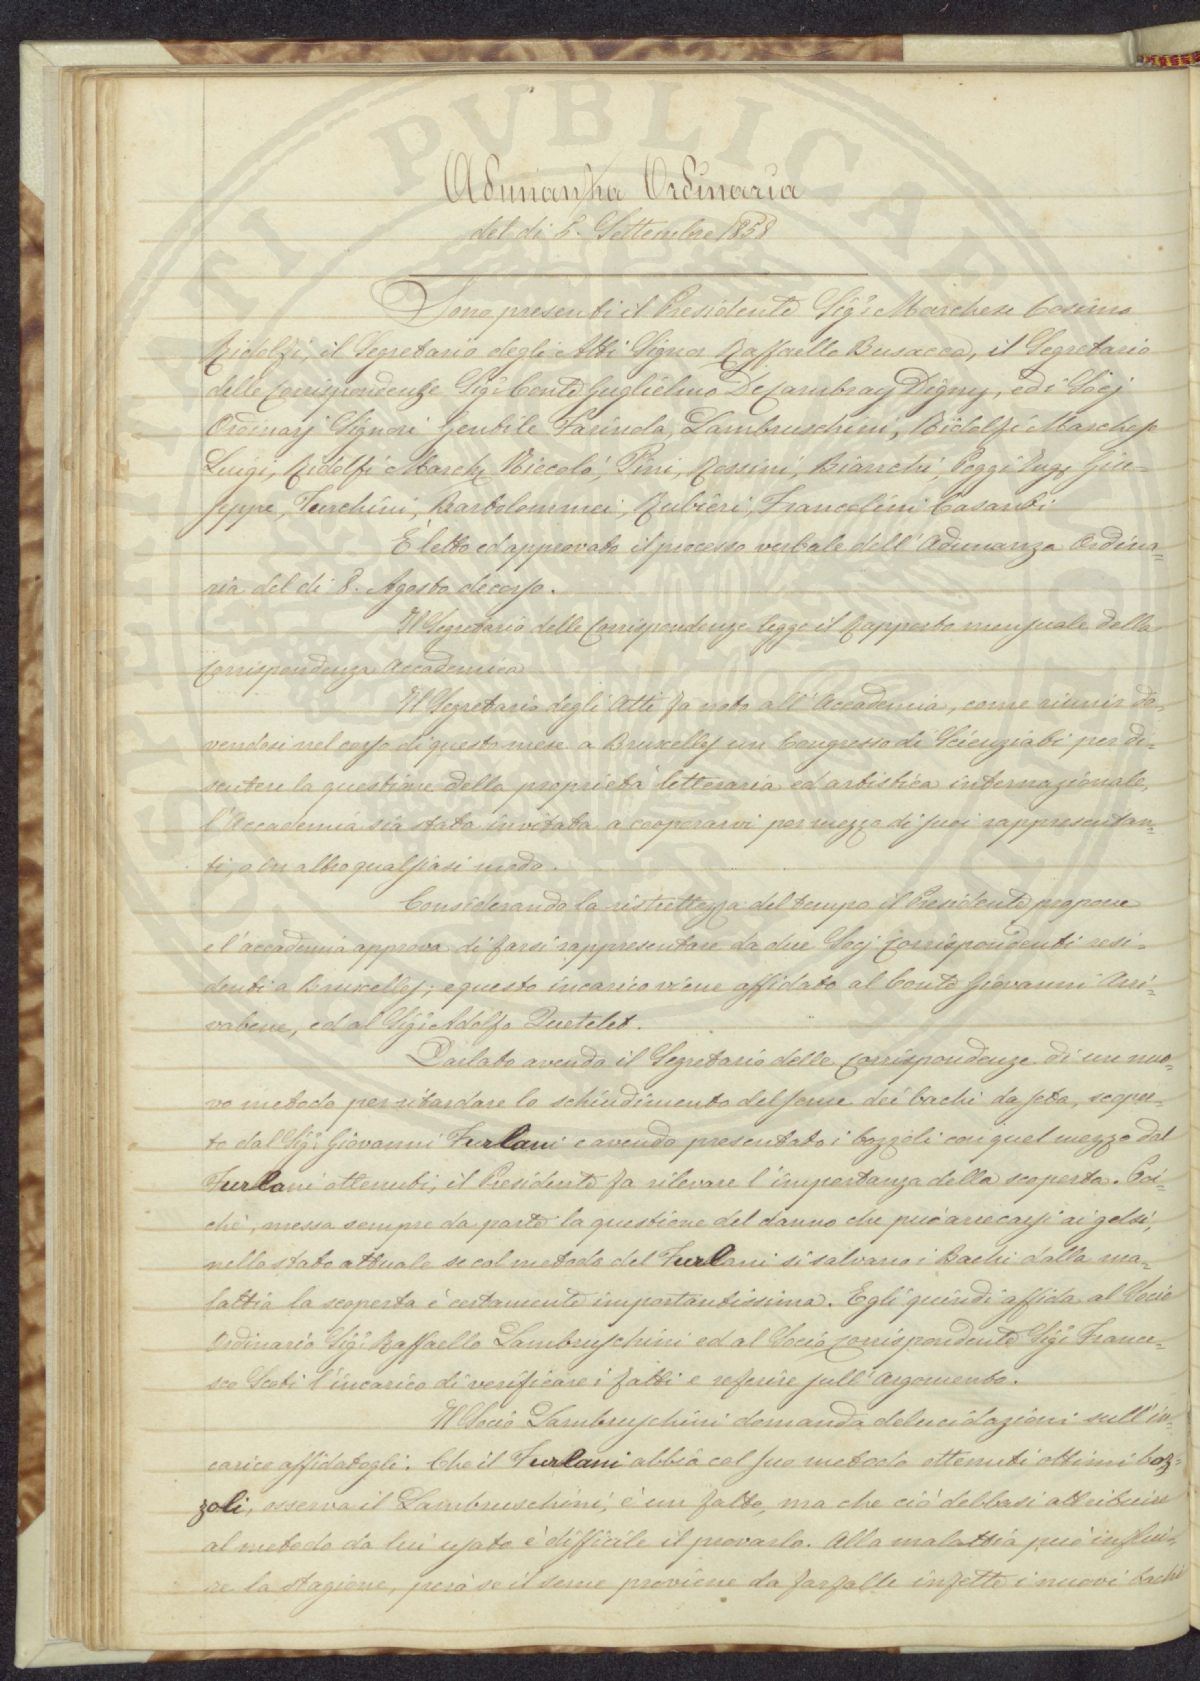 Adunanza Ordinaria
del dì 5. Settembre 1858
Sono presenti il Presidente Sigr. Marchese Cosimo
Ridolfi, il Segretario degli Atti Signor Raffaello Busacca, il Segretario
delle Corrispondenze Sigr. Conte Guglielmo De Cambray Digny, ed i Socj
Ordinarj Signori Gentile Farinola, Lambruschini, Ridolfi Marchese
Luigi, Ridolfi March. Niccolò, Pini, Rossini, Bianchi, Poggi Giu-
seppe, Turchini, Bartolommei, Rubieri, Francolini Casanti
È letto ed approvato il processo verbale dell'Adunanza Ordina=
ria del dì 8. Agosto decorso.
Il Segretario delle Corrispondenze legge il Rapporto mensuale della
Corrispondenza Accademica
Il Segretario degli Atti fa noto all'Accademia, come riunir do-
vendosi nel corso di questo mese a Bruxelles un Congresso di Scienziati per di=
scutere la questione della proprietà letteraria ed artistica internazionale,
l'Accademia sia stata invitata a cooperarvi per mezzo di suoi rappresentan=
ti, o in altro qualsiasi modo.
Considerando la ristrettezza del tempo il Presidente propone
e l'accademia approva di farsi rappresentare da due Socj Corrispondenti resi-
denti a Bruxelles; e questo incarico viene affidato al Conte Giovanni Arri-
vabene, ed al Sigr. Adolfo Quetelet.
Parlato avendo il Segretario delle Corrispondenze di un nuo=
vo metodo per ritardare lo schiudimento del seme dei bachi da seta, scoper-
to dal Sigr. Giovanni Furlani e avendo presentato i bozzoli con quel mezzo dal
Furlani ottenuti, il Presidente fa rilevare l'importanza della scoperta. Poi-
chè, messa sempre da parte la questione del danno che può arrecarsi ai gelsi,
nello stato attuale se col metodo del Furlani si salvano i Bachi dalla ma=
lattia la scoperta è certamente importantissima. Egli quindi affida al Socio
Ordinario Sigr. Raffaello Lambruschini ed al Socio Corrispondente Sigr. France=
sco Scoti l'incarico di verificare i fatti e referire sull'Argomento.
Il Socio Lambruschini domanda delucidazioni sull'in-
carico affidatogli. Che il Furlani abbia col suo metodo ottenuti ottimi boz=
zoli, osserva il Lambruschini, è un fatto, ma che ciò debbasi attribuire
al metodo da lui usato è difficile il provarlo. Alla malattia può influi-
re la stagione, però se il seme proviene da farfalle infette i nuovi bachi